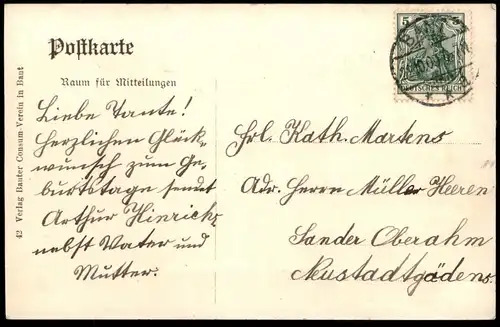 Postkarte
Raum für Mitteilungen
Liebe Tante!
Herzlichen Glück-
wunsch zum Ge-
burtstage sendet
Arthur Hinrichs
nebst Vater und
Mutter.
42 Verlag Banter Consum-Verein in Bant
5 5
DEUTSCHES REICH
Frl. Kath. Martens
Adr. Herrn Müller Heeren
Sander Oberahm
Neustadtgödens.